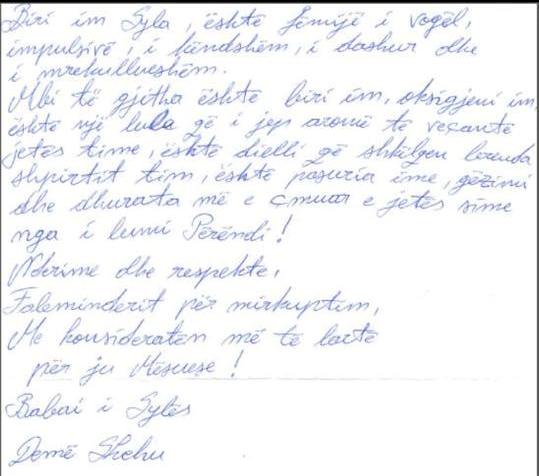 Biri im Syla, është fëmijë i vogël,
impulsivë, i këndshëm, i dashur dhe
i mrekullueshëm.
Mbi të gjitha është biri im, oksigjeni im,
është një lule që i jep aromë të veçantë
jetës time, është dielli që shkëlqen brenda
shpirtit tim, është pasuria ime, gëzimi
dhe dhurata më e çmuar e jetës sime
nga i lumi Perëndi!
Nderime dhe respekte,
Faleminderit për mirkuptim,
Me konsideratën më të lartë
për ju Mësuese!
Babai i Sylës
Demë Shehu